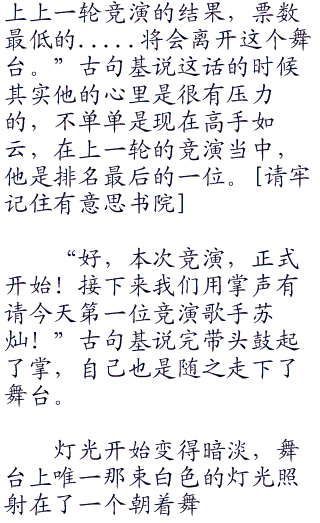 上上一轮竞演的结果，票数
最低的.....将会离开这个舞
台。”古句基说这话的时候
其实他的心里是很有压力
的，不单单是现在高手如
云，在上一轮的竞演当中，
他是排名最后的一位。[请牢
记住有意思书院]
“好，本次竞演，正式
开始！接下来我们用掌声有
请今天第一位竞演歌手苏
灿！”古句基说完带头鼓起
了掌，自己也是随之走下了
舞台。
灯光开始变得暗淡，舞
台上唯一那束白色的灯光照
射在了一个朝着舞